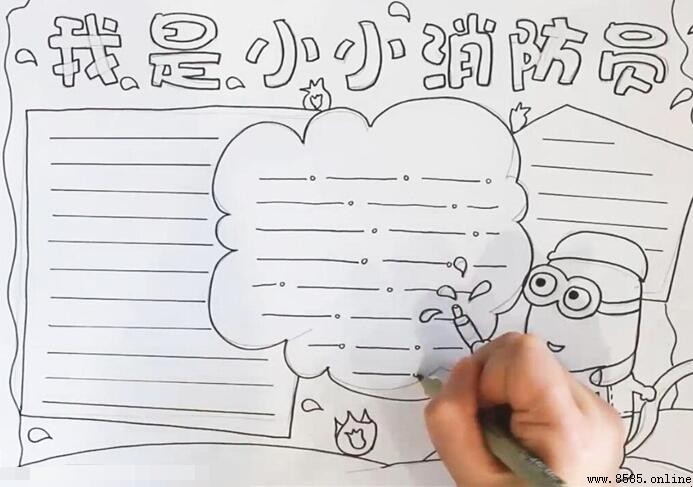 我是小小消防员
www.8585.online